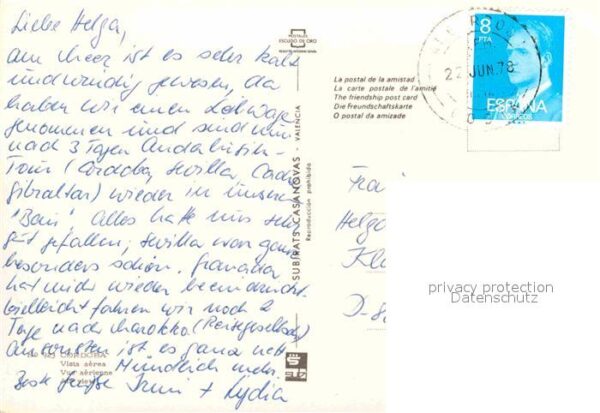 Liebe Helga,
am Meer ist es sehr kalt
und windig gewesen, da
haben wir einen Leihwagen
genommen und sind nun
nach 3 Tagen Andalusien-
Tour (Cordoba, Sevilla, Cadiz
Gibraltar) wieder in unserer
"Bain". Alles hat uns sehr
gut gefallen, Sevilla war ganz
besonders schön. Granada
hat mich wieder beeindruckt.
Vielleicht fahren wir noch 2
Tage nach Marokko (Reisegesellschaft)
Ansonsten ist es ganz nett
Mündlich mehr.
Beste Grüße Irmi + Lydia
CORDOBA
Vista aérea
Vue aérienne
POSTALES
ESCUDO DE ORO
SUBIRATS CASANOVAS - VALENCIA
Reproducción prohibida
La postal de la amistad
La carte postale de l'amitié
The friendship post card
Die Freundschaftskarte
O postal da amizade
8
PTA
ESPAÑA
CORREOS
22 JUN. 78
Frau
Helga
D-8
privacy protection
Datenschutz